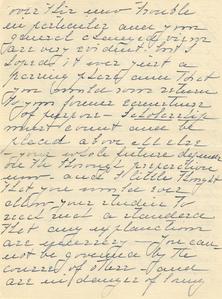 over their own trouble
in particular and your
general
are very evident. but I
it over just a
passing phase and that
you would soon return
to your former
of purpose - Scholarship
must count and be
placed above all else
- your whole future depends
on the thorough preparation
now - and I little thought
that you would ever
allow your studies to
reach such a standard
that any explanations
are necessary - You can
not be governed by the
course of others - and
are in danger of being